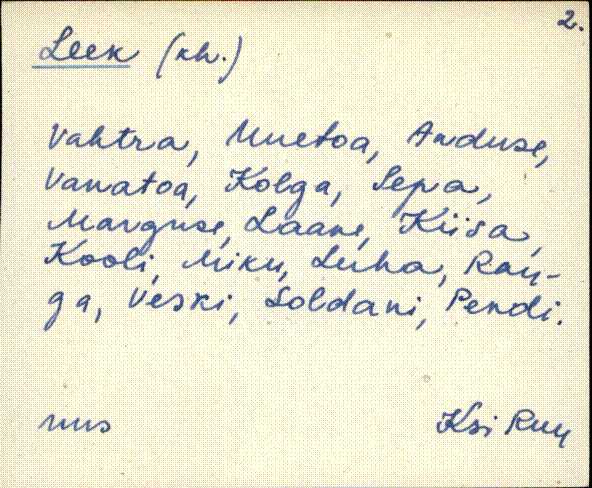 2.
Leek (kh.)
Vahtra, Uuetoa, Anduse,
Vanatoa, Kolga, Sepa,
Marguse, Laane, Kiisa,
Kooli, Miku, Luha, Ran-
ga, Veski, Soldani, Pendi.
Ksi Ruy